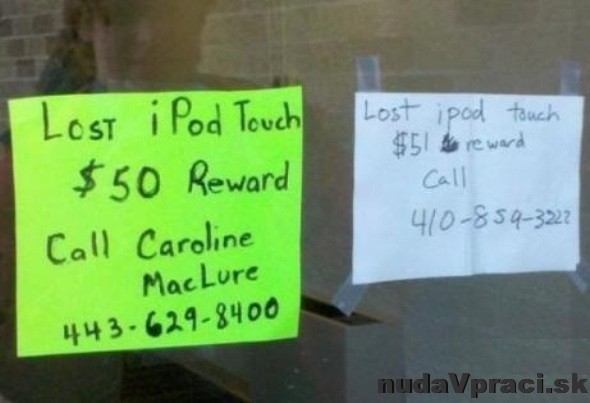 Lost iPod Touch
$50 Reward
Call Caroline
MacLure
443-629-8400
Lost ipod touch
$51 reward
Call
410-859-3222
nudaVpraci.sk